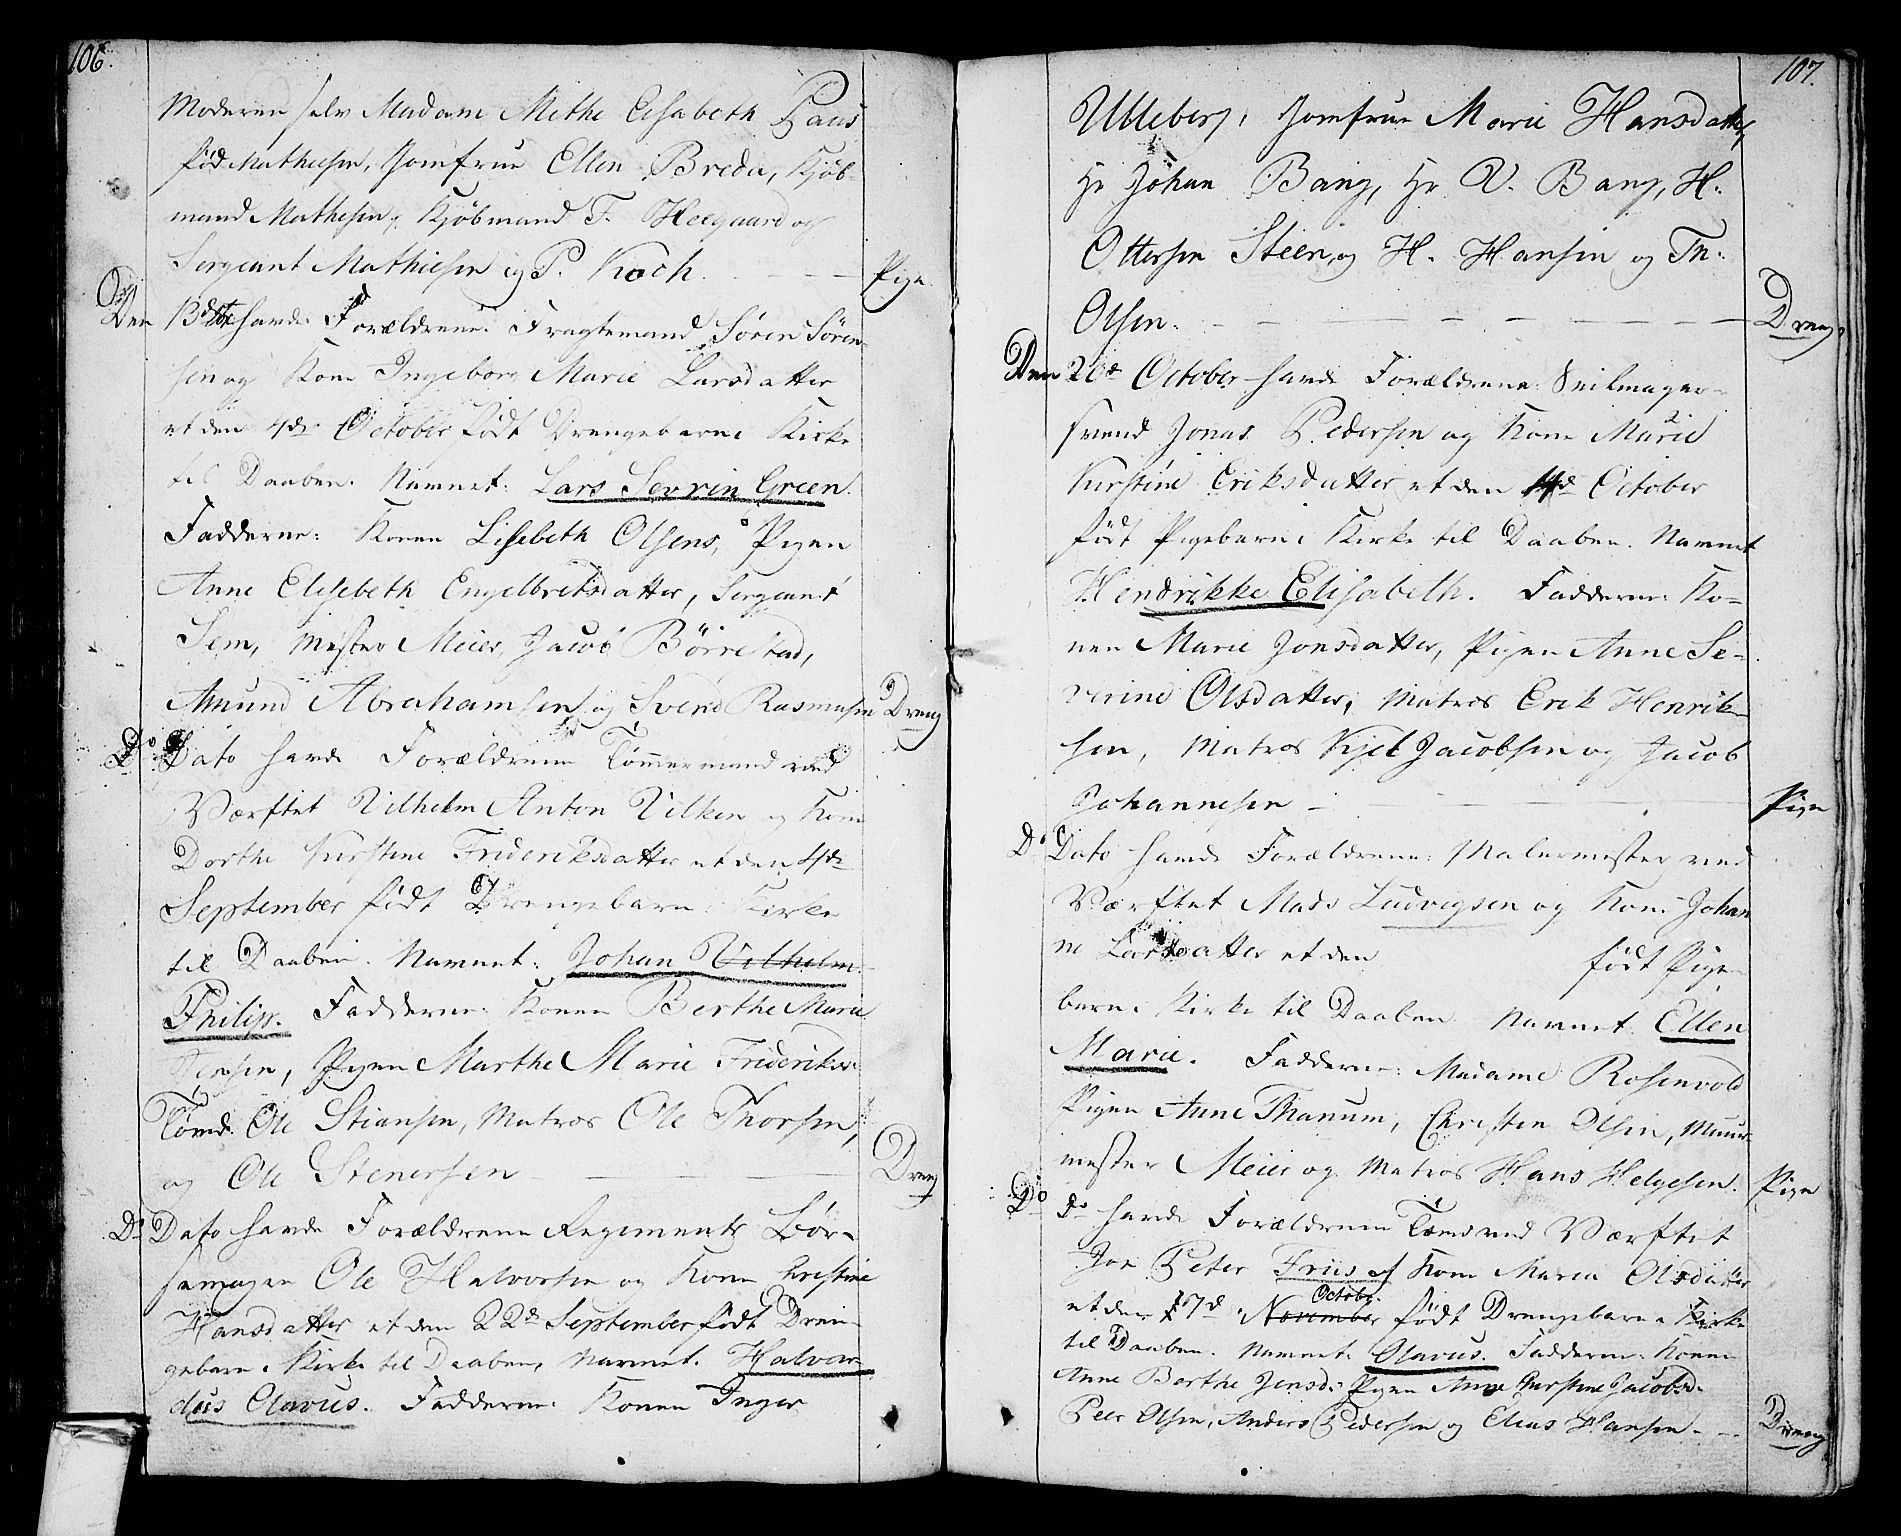 106.
Moderen selv Madam Methe Elisabeth Paus
fød Mathiesen, Jomfrue Ellen Breda, Kjøb-
mand Mathesen, Kjøbmand T. Heegaard og
Sergeant Mathiesen og P. Koch. Pige
Den 13de havde Forældrene Fragtemand Søren Søren-
sen og Kone Ingeborg Marie Larsdatter
et den 4de October født Drengebarn i Kirke
til Daaben. Navnet: Lars Sevrin Green.
Fadderne: Konen Lisebeth Olsens, Pigen
Anne Elisebeth Engelbretsdatter, Sergeant
Sem, Mester Meier, Jacob Börrestad,
Amund Abrahamsen og Svend Rasmusen Dreng
Do Dato havde Forældrene Tømmermand ved
Værftet Vilhelm Anton Vilken og Kone
Dorthe Kirstine Frideriksdatter et den 4de
September født Drengebarn i Kirke
til Daaben. Navnet: Johan Vilhelm
Philip. Fadderne: Konen Berthe Marie
Jensen, Pigen Marthe Marie Frideriks
Tømd. Ole Stiansen, Matros Ole Thorsen,
og Ole Stenersen Dreng
Do Dato havde Forældrene Regiments Bør-
semager Ole Halvorsen og Kone Christine
Hansdatter et den 22de September født Dren-
gebarn i Kirke til Daaben, Navnet. Halvar-
dus Olavus. Fadderne: Konen Inger
107.
Ulleberg, Jomfrue Marie Hansdatter,
Hr Johan Bang, Hr V. Bang, H.
Ottersen Steen, og H. Hansen og Th.
Olsen. Dreng
Den 20de October havde Forældrene Seilmager-
svend Jonas Pedersen og Kone Marie
Kirstine Eriksdatter et den 4de October
født Pigebarn i Kirke til Daaben. Navnet
Hendrikke Elisabeth. Fadderne: Ko-
nen Marie Jonsdatter, Pigen Anne Se-
verine Olsdatter, Matros Erik Henrik-
sen, Matros Kjel Jacobsen og Jacob
Johannesen Pige
Do Dato havde Forældrene: Malermester ved
Værftet Mads Ludvigsen og Kone Johan
ne Larsdatter et den født Pige-
barn i Kirke til Daaben. Navnet. Ellen
Marie. Fadderne: Madame Rosenvold
Pigen Anne Thanum, Christen Olsen, Muur-
mester Meier og Matros Hans Helgesen. Pige
Do do havde Forældrene Tømd ved Værftet
Jon Peter Friis og Kone Maren Olsdatter
et den 17d November Octobr. født Drengebarn i Kirke
til Daaben. Navnet. Olavus. Fadderne: Konen
Anne Berthe Jensd. Pigen Anne Kirstine Jacobsd.
Peer Olsen, Anders Pedersen og Elias Hansen. Dreng